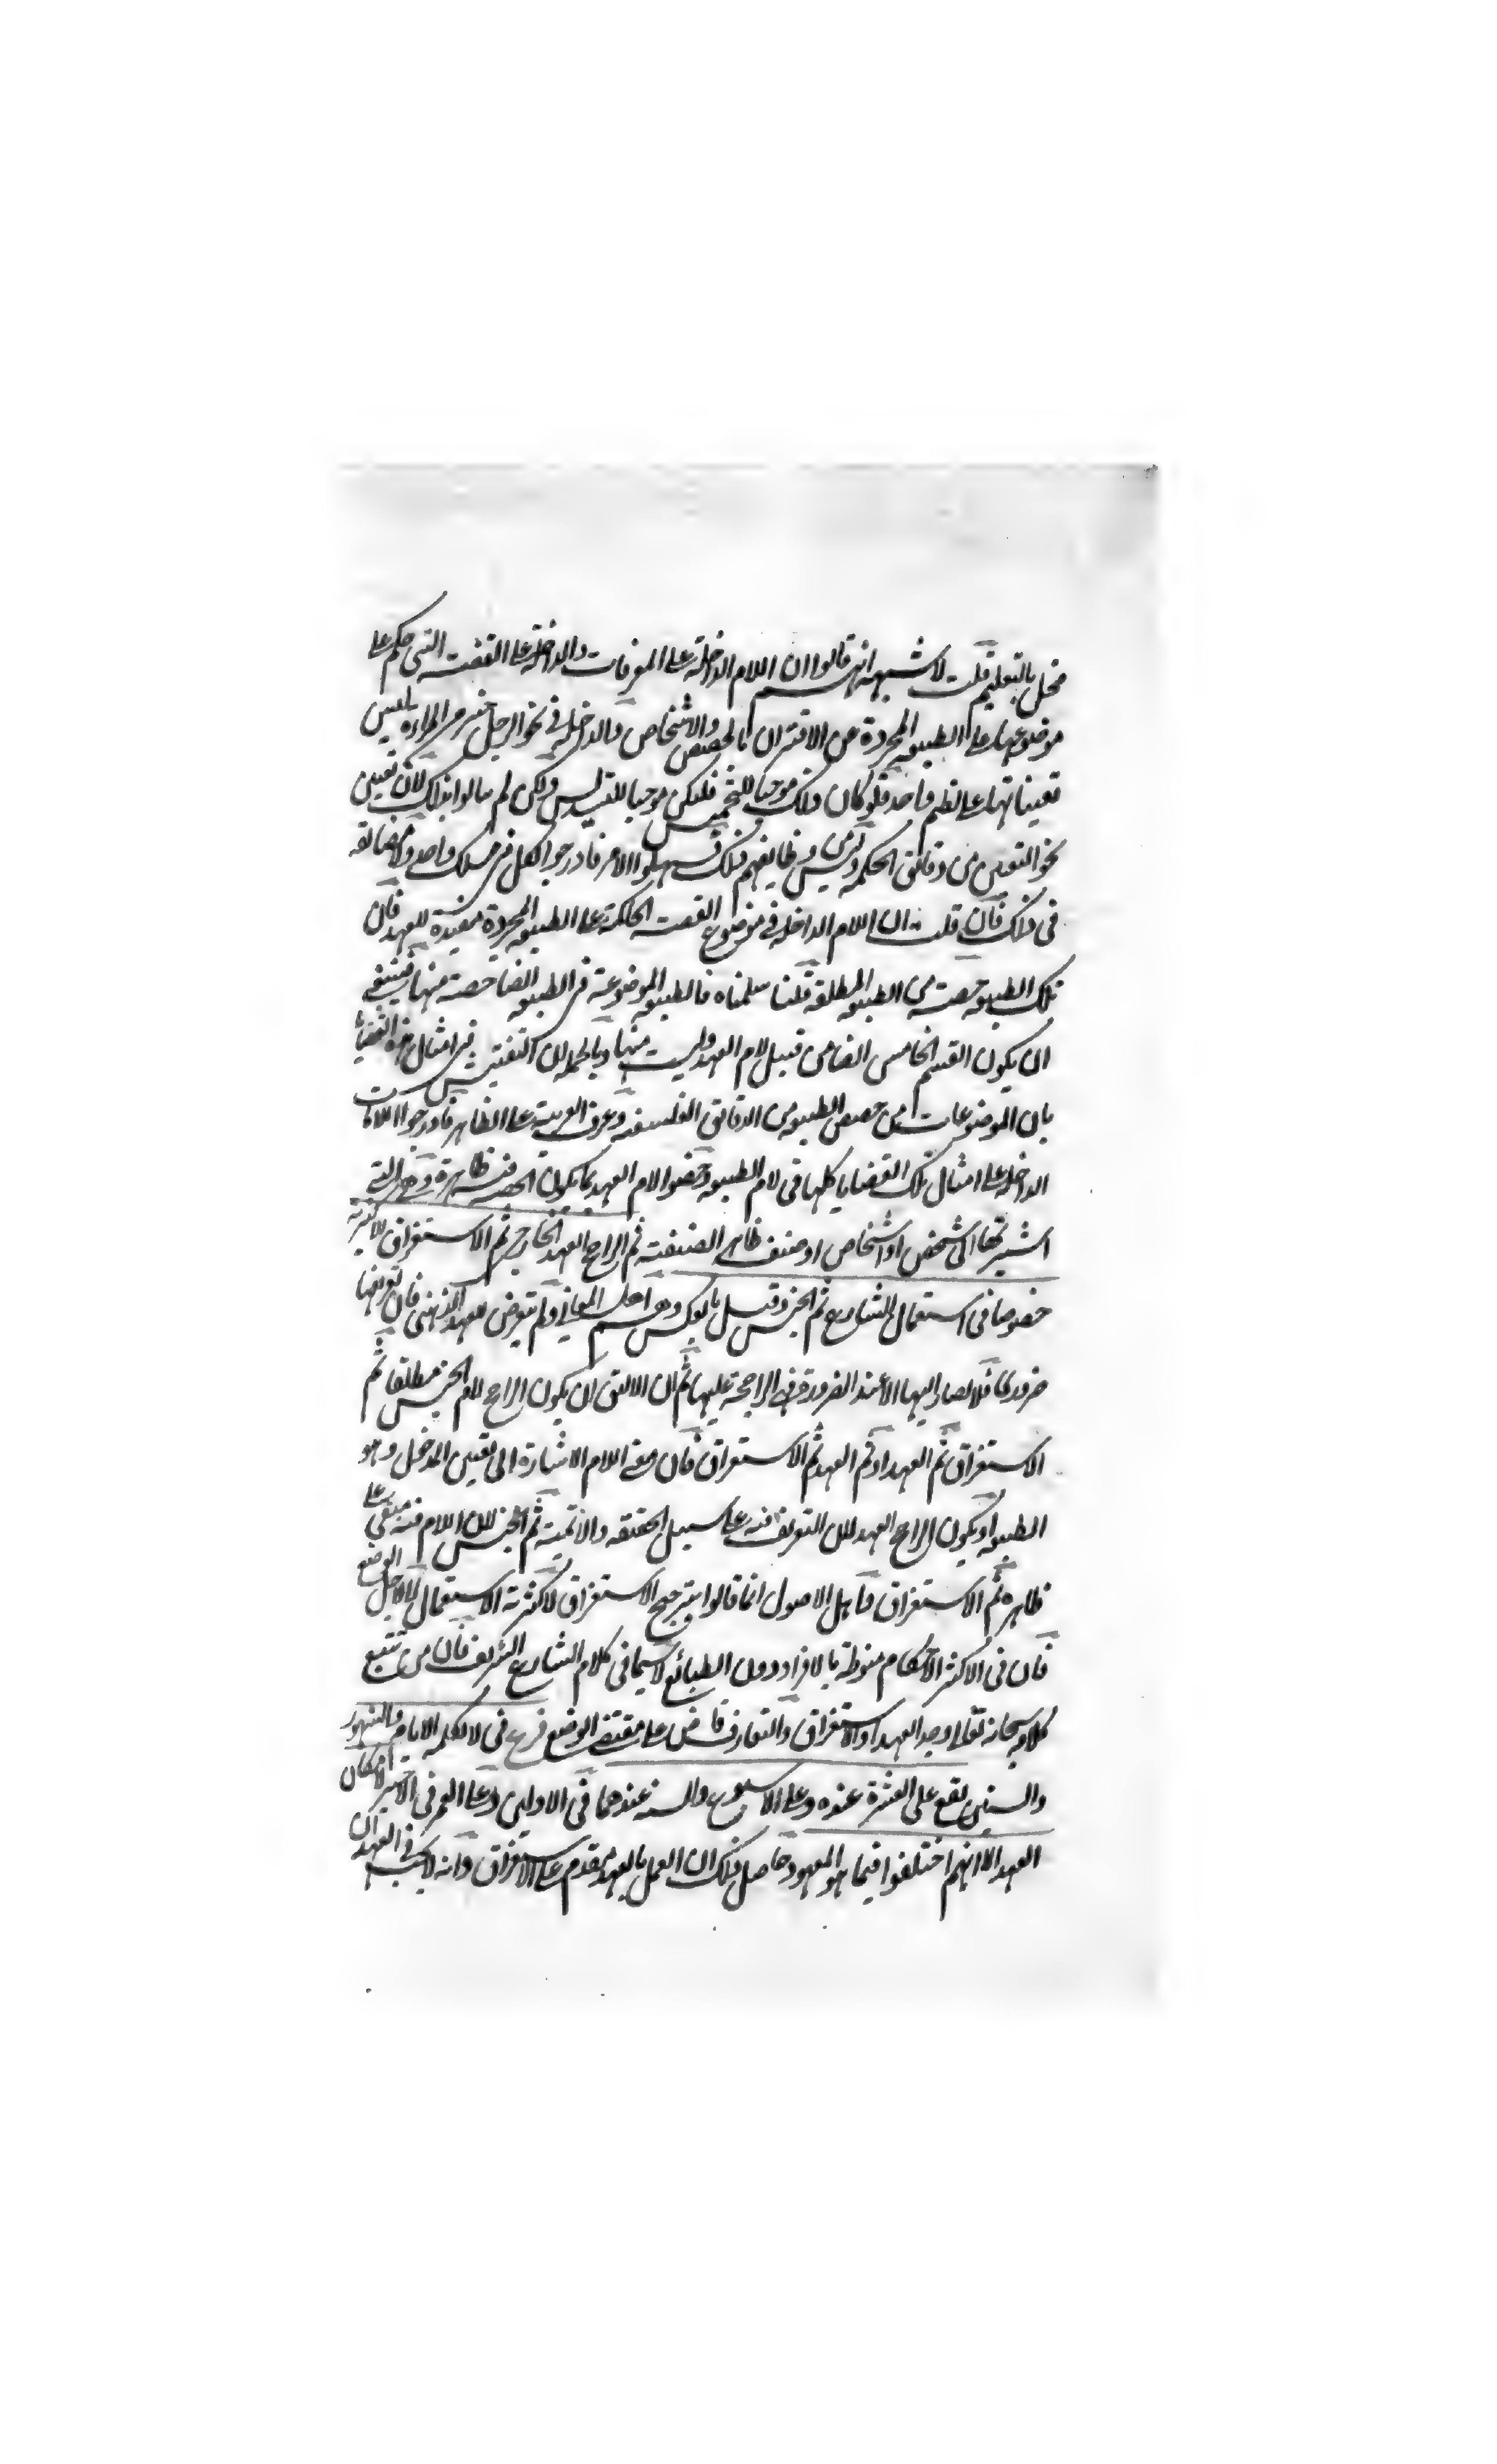 مخل بالتعليم قلت لا شبهة انهم قالوا ان اللام الداخلة على المعرفات والداخلة على القضية التي حكم على
موضوعها على الطبيعة المجردة عن الاقتران بالحصص والاشخاص والداخلة في نحو الرجل خير من المراة ليس
تعيناتها على نظم واحد فلو كان ذلك موجبا للتخميس فليكن موجبا للتسديس ولكن لم يبالوا بذلك لان تعيين
نحو التعين من دقائق الحكمة وليس من وظايفهم فلذلك سهلوا الامر فادرجوا الكل في مسلك واحد ولا مضايقة
في ذلك فان قلت ان اللام الداخلة في موضوع القضية الحاكمة على الطبيعة المجردة مفيدة للعهد فان
تلك الطبيعة حصة من الطبيعة المطلقة قلنا سلمناه فالطبيعة الموضوعة في الطبيعة ايضا حصة منها فينبغي
ان يكون القسم الخامس ايضا من قبيل لام العهد وليست منها وبالجملة ان التفتيش في امثال هذه القضايا
بان الموضوعات من حصص الطبيعة من الدقائق الفلسفية وعرف العربية على الظاهر فادرجوا اللامات
الداخلة على امثال تلك القضايا كلها في لام الطبيعة وخصوا لام العهد بما يكون الحصة فيه ظاهرة وهي التي
اشير بها الى شخص او اشخاص او صنف ظاهر الصنفية ثم الراجح العهد الخارجي ثم الاستغراق للاكثرية
خصوصا في استعمال الشارع ثم الجنس وقيل بالعكس وهم اهل المعاني ولم يتعرض للعهد الذهني فان تعريفها
ضروري فلا يصار اليها الا عند الضرورة فهي الراجحة عليها ثم ان الاليق ان يكون الراجح لام الجنس مطلقا ثم
الاستغراق ثم العهد او ثم العهد ثم الاستغراق فان معنى اللام الاشارة الى تعيين المدخول وهو
الطبيعة او يكون الراجح العهد لان التعريف فيه على سبيل الحقيقة والاتمية ثم الجنس لان اللام فيه مبقي على الوضع
ظاهره ثم الاستغراق واهل الاصول انما قالوا بترجيح الاستغراق لاكثرية الاستعمال لا لاجل
فان في الاكثر الاحكام منوطة بالافراد دون الطبائع لا سيما في كلام الشارع الشريف فان من تتبع
كلامه سبحانه تعالى وجد العهد او الاستغراق والتعارف قاض على مقتضى الوضع فرع في لا اكلمه الايام والشهور
والسنين يقع على العشرة عنده وعلى الاسبوع والسنة عندهما في الاولين وعلى العمر في الاخير لامكان
العهد الا انهم اختلفوا فيما هو المعهود حاصل ذلك ان العمل بالعهد مقدم على الاستغراق وانه لا يجب في العهد ان